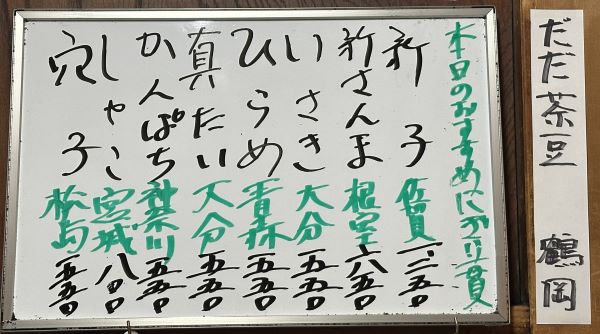 だだ茶豆 鶴岡
本日のおすすめにぎり一貫
新子 佐賀 一、三五〇
新さんま 根室 六五〇
いさき 大分 五五〇
ひらめ 青森 五五〇
真たい 大分 五五〇
かんぱち 神奈川 五五〇
しゃこ 宮城 八〇〇
穴子 松島 五五〇